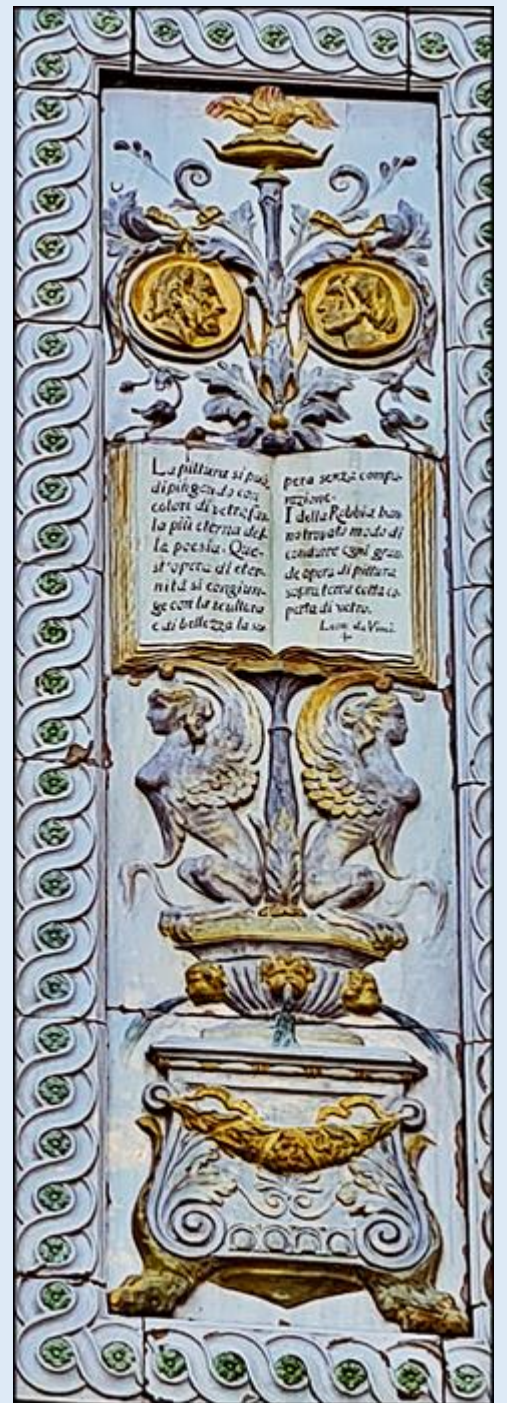 La pittura si può
dipingendo con
colori di vetro far
la più eterna del
la poesia. Que-
st'opera di eter-
nità si congiun-
ge con la scultura
e di bellezza la su-
pera senza compa-
razione.
I della Robbia han
no trovato modo di
condurre ogni gran
de opera di pittura
sopra terra cotta co-
perta di vetro.
Leon. da Vinci